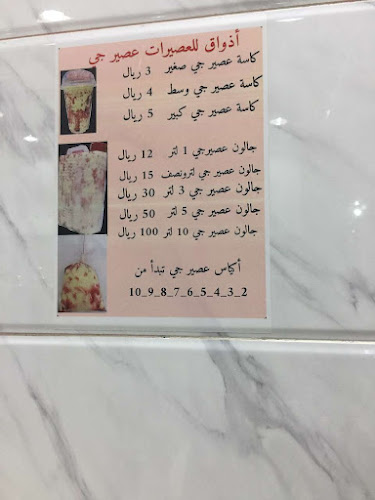 أذواق للعصيرات عصير جي
كاسة عصير جي صغير 3 ريال
كاسة عصير جي وسط 4 ريال
كاسة عصير جي كبير 5 ريال
جالون عصيرجي 1 لتر 12 ريال
جالون عصير جي لترونصف 15 ريال
جالون عصير جي 3 لتر 30 ريال
جالون عصير جي 5 لتر 50 ريال
جالون عصير جي 10 لتر 100 ريال
أكياس عصير جي تبدأ من
2_3_4_5_6_7_8_9_10